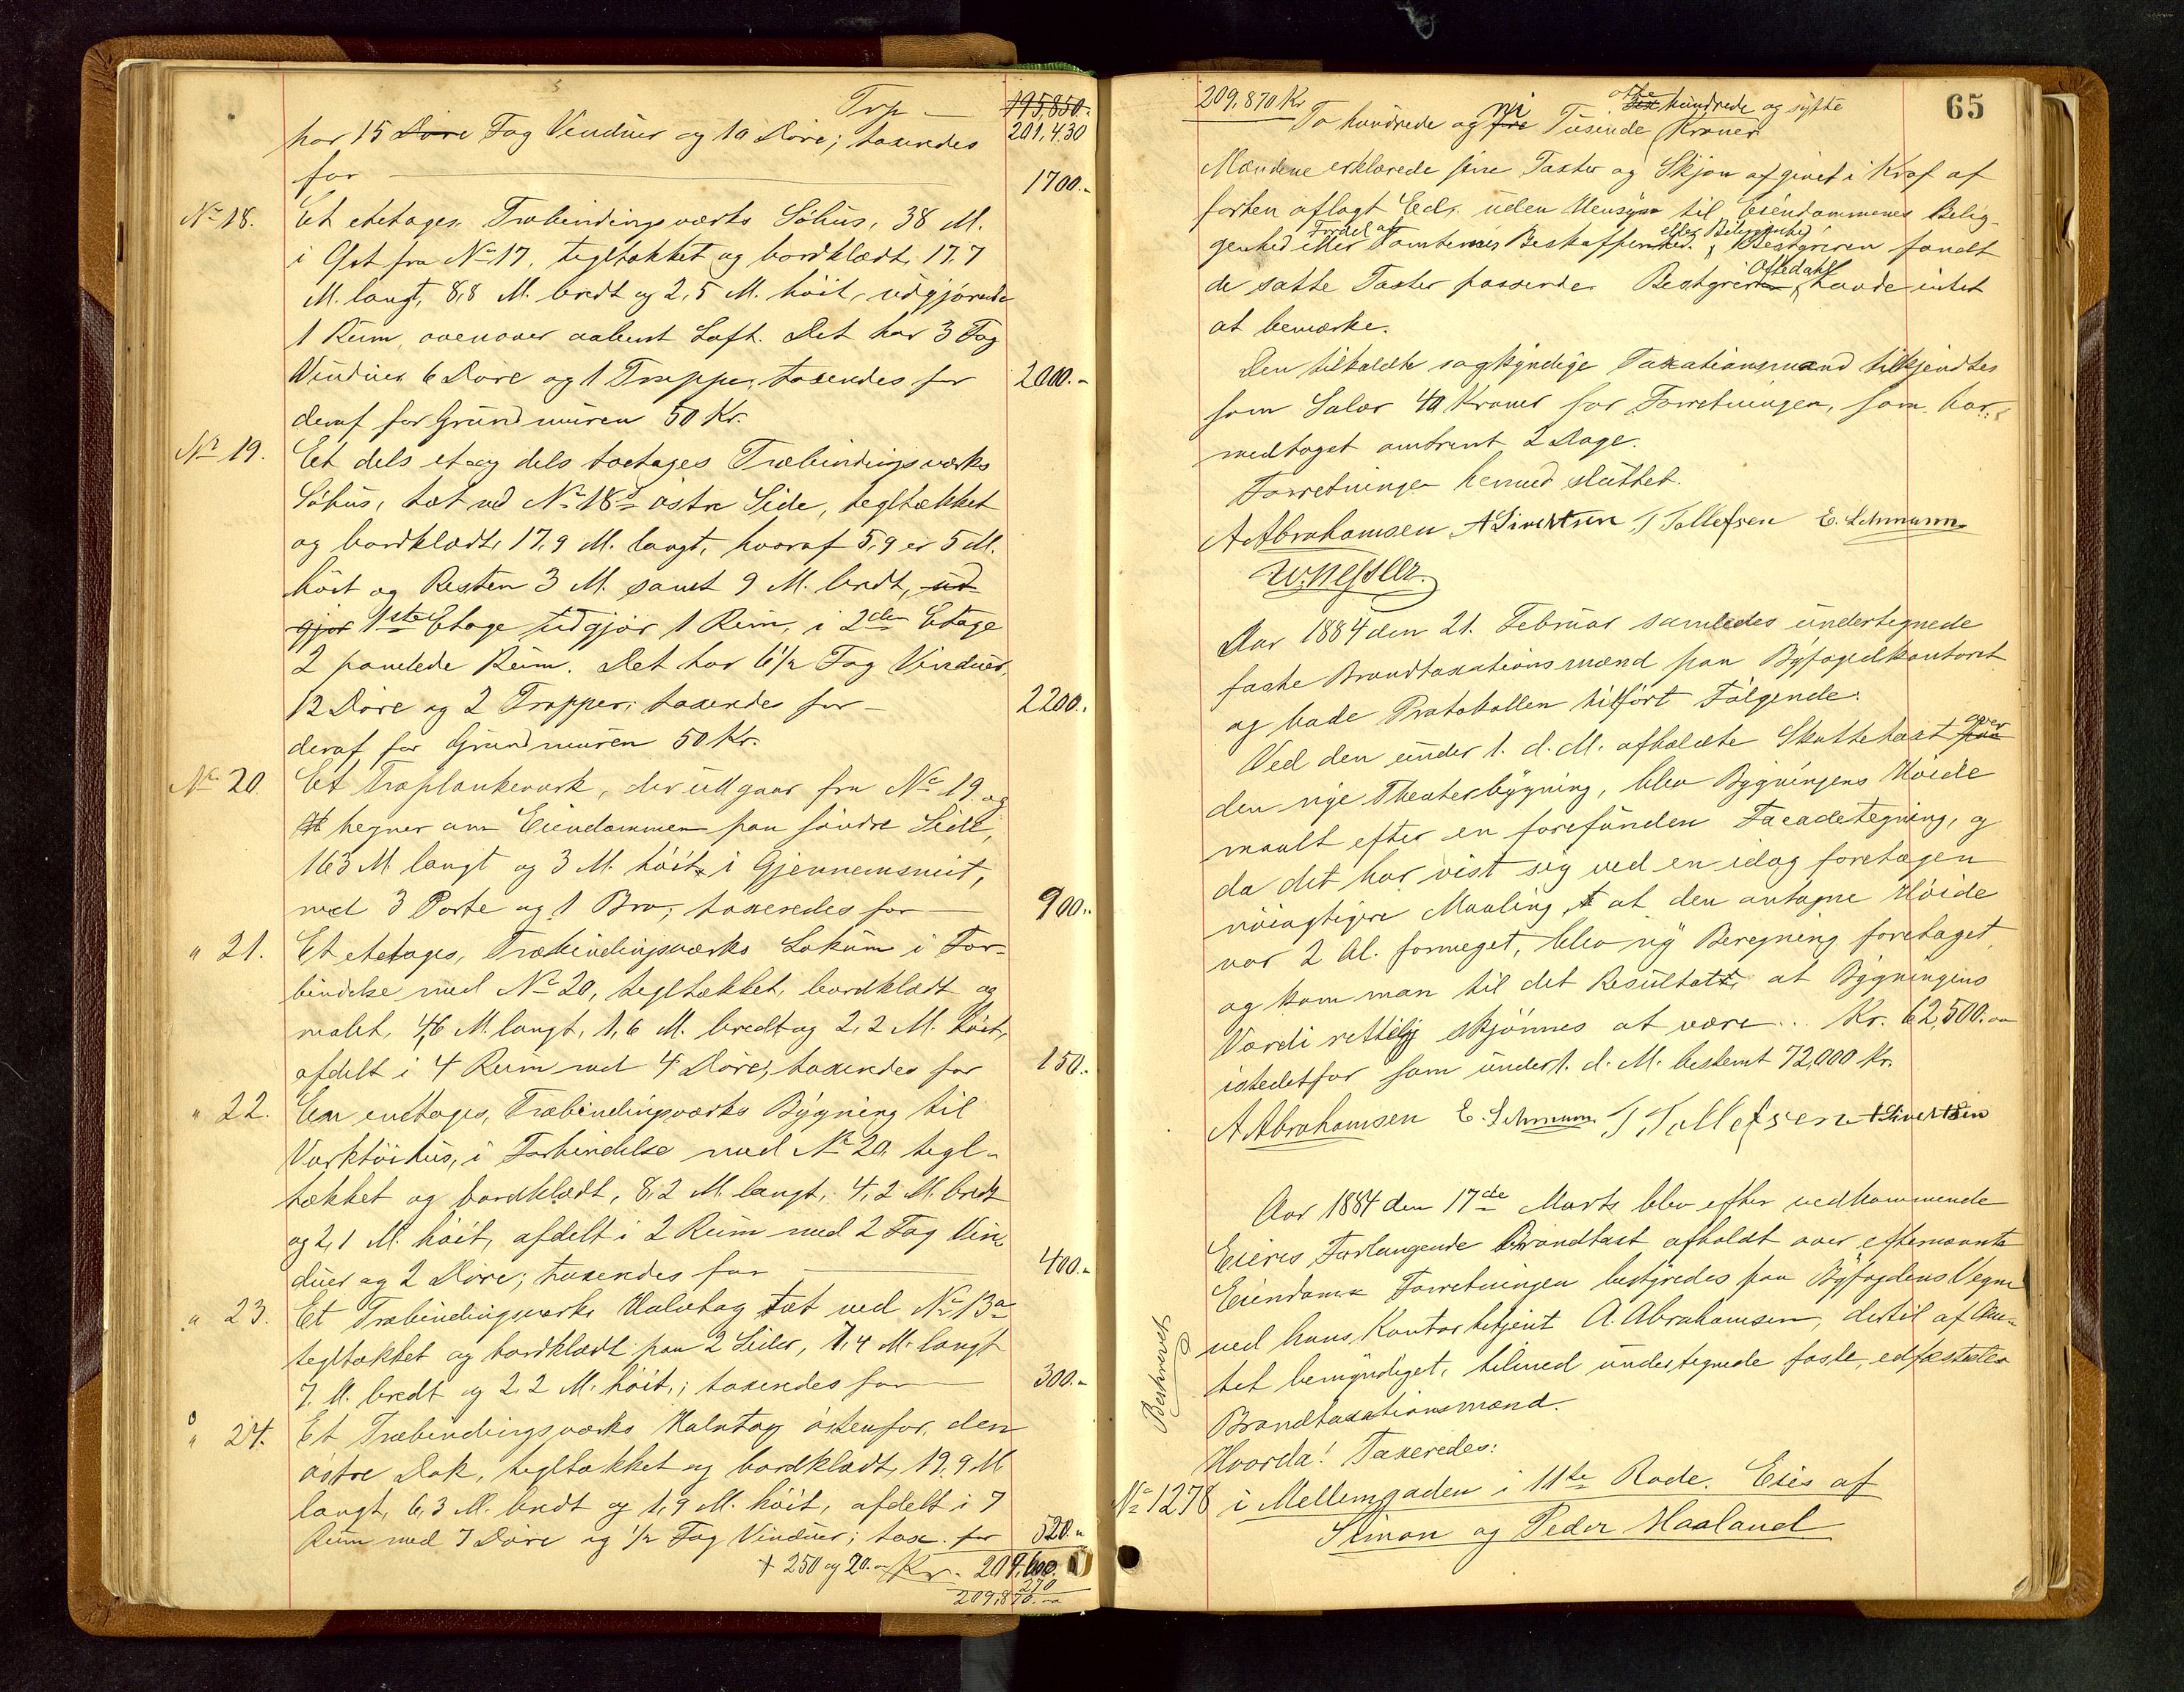 Trp - 195,850.-
har 15 Döre Fag Vinduer og 10 Döre; taxeredes 201,430
for 1700.-
No 18. Et etetages, Træbindingsværks Söhus, 38 M.
i Öst fra No 17, tegltækket og bordklædt, 17,7
M. langt, 8,8 M. bredt og 2,5 M. höit, udgjörende
1 Rum, ovenover aabent Loft. Det har 3 Fag
Vinduer, 6 Döre og 1 Trappe, taxeredes for 2000.-
deraf for Grundmuren 50 Kr.
No 19. Et dels et og dels toetages Træbindingsværks
Söhus, tæt ved No 18s östre Side, tegltækket
og bordklædt, 17,9 M. langt, hvoraf 5,9 er 5 M.
höit og Resten 3 M. samt 9 M. bredt, ud-
gjör 1ste Etage udgjör 1 Rum, i 2den Etage
2 panelede Rum. Det har 6 1/2 Fag Vinduer,
12 Döre og 2 Trapper; taxeredes for - 2200.-
deraf for Grundmuren 50 Kr.
No 20. Et Træplankeværk, der udgaar fra No 19 og
hegner om Eiendommen paa söndre Side,
163 M. langt og 3 M. höit i Gjennemsnit,
med 3 Porte og 1 Bro; taxeredes for 900.-
" 21. Et etetages, Træbindingsværks Lokum i For-
bindelse med No 20, tegltækket, bordklædt og
malet, 4,6 M. langt, 1,6 M. bredt og 2,2 M. höit,
afdelt i 4 Rum med 4 Döre, taxeredes for 150.-
" 22. En enetages, Træbindingsværks Bygning til
Værktöihus, i Forbindelse med No 20, tegl-
tækket og bordklædt, 8,2 M. langt, 4,2 M. bredt
og 2,1 M. höit, afdelt i 2 Rum med 2 Fag Vin-
duer og 2 Döre; taxeredes for 400.-
" 23. Et Træbindingsværks Halvtag tæt ved No 13a
tegltækket og bordklædt paa 2 Sider, 7,4 M. langt
7 M. bredt og 2,2 M. höit; taxeredes for 300.-
" 24. Et Træbindingsværks Halvtag östenfor den
östre Dok, tegltækket og bordklædt, 19,9 M.
langt, 6,3 M. bredt og 1,9 M. höit, afdelt i 7
Rum med 7 Döre og 1/2 Fag Vinduer; tax. for 520.-
+ 250 og 20.- Kr. 209,600.
270
209,870.-
65
209,870 Kr
To hundrede og fire ni Tusinde sex otte hundrede og sytte Kroner
Mændene erklærede sine Taxter og Skjön afgivet i Kraf af
forhen aflagt Ed, uden Hensyn til Eiendommenes Belig-
genhed eller Fordel af Tomternes Beskaffenhed eller Beliggenhed. Bestyreren fandt
de satte Taxter passende. Bestyreren Oftedahl havde intet
at bemærke.
Den tilkaldte sagkyndige Taxationsmand tilkjendtes
som Salær 40 Kroner for Forretningen, som har
medtaget omtrent 2 Dage.
Forretningen hermed sluttet.
A Abrahamsen A Sivertsen T Tollefsen E. Lehmann
W. Nessler.
Aar 1884 den 21. Februar samledes undertegnede
faste Brandtaxationsmænd paa Byfogedkontoret
og bade Protokollen tilfört Fölgende:
Ved den under 1. d. M. afholdte Skattetaxt paa over
den nye Theaterbygning, blev Bygningens Höide
maalt efter en forefunden Facadetegning, og
da det har vist sig ved en idag foretagen
nöiagtigere Maaling, at den antagne Höide
var 2 Al. formeget, blev ny Beregning foretaget,
og kom man til det Resultat, at Bygningens
Værdi rettelig skjönnes at være ... Kr. 62,500.-
istedetfor som under 1. d. M. bestemt 72,000 Kr.
A Abrahamsen E. Lehmann T Tollefsen A Sivertsen
Aar 1884 den 17de Marts blev efter vedkommende
Eieres Forlangende Brandtaxt afholdt over efternævnte
Eiendom. Forretningen bestyredes paa Byfogdens Vegne
ved hans Kontorbetjent A. Abrahamsen, dertil af Am-
tet bemyndiget, tilmed undertegnede faste, edfæstede
Brandtaxationsmænd.
Beskrevet
Hvorda! Taxeredes:
No 1278 i Mellemgaden i 11te Rode. Eies af
Simon og Peder Haaland